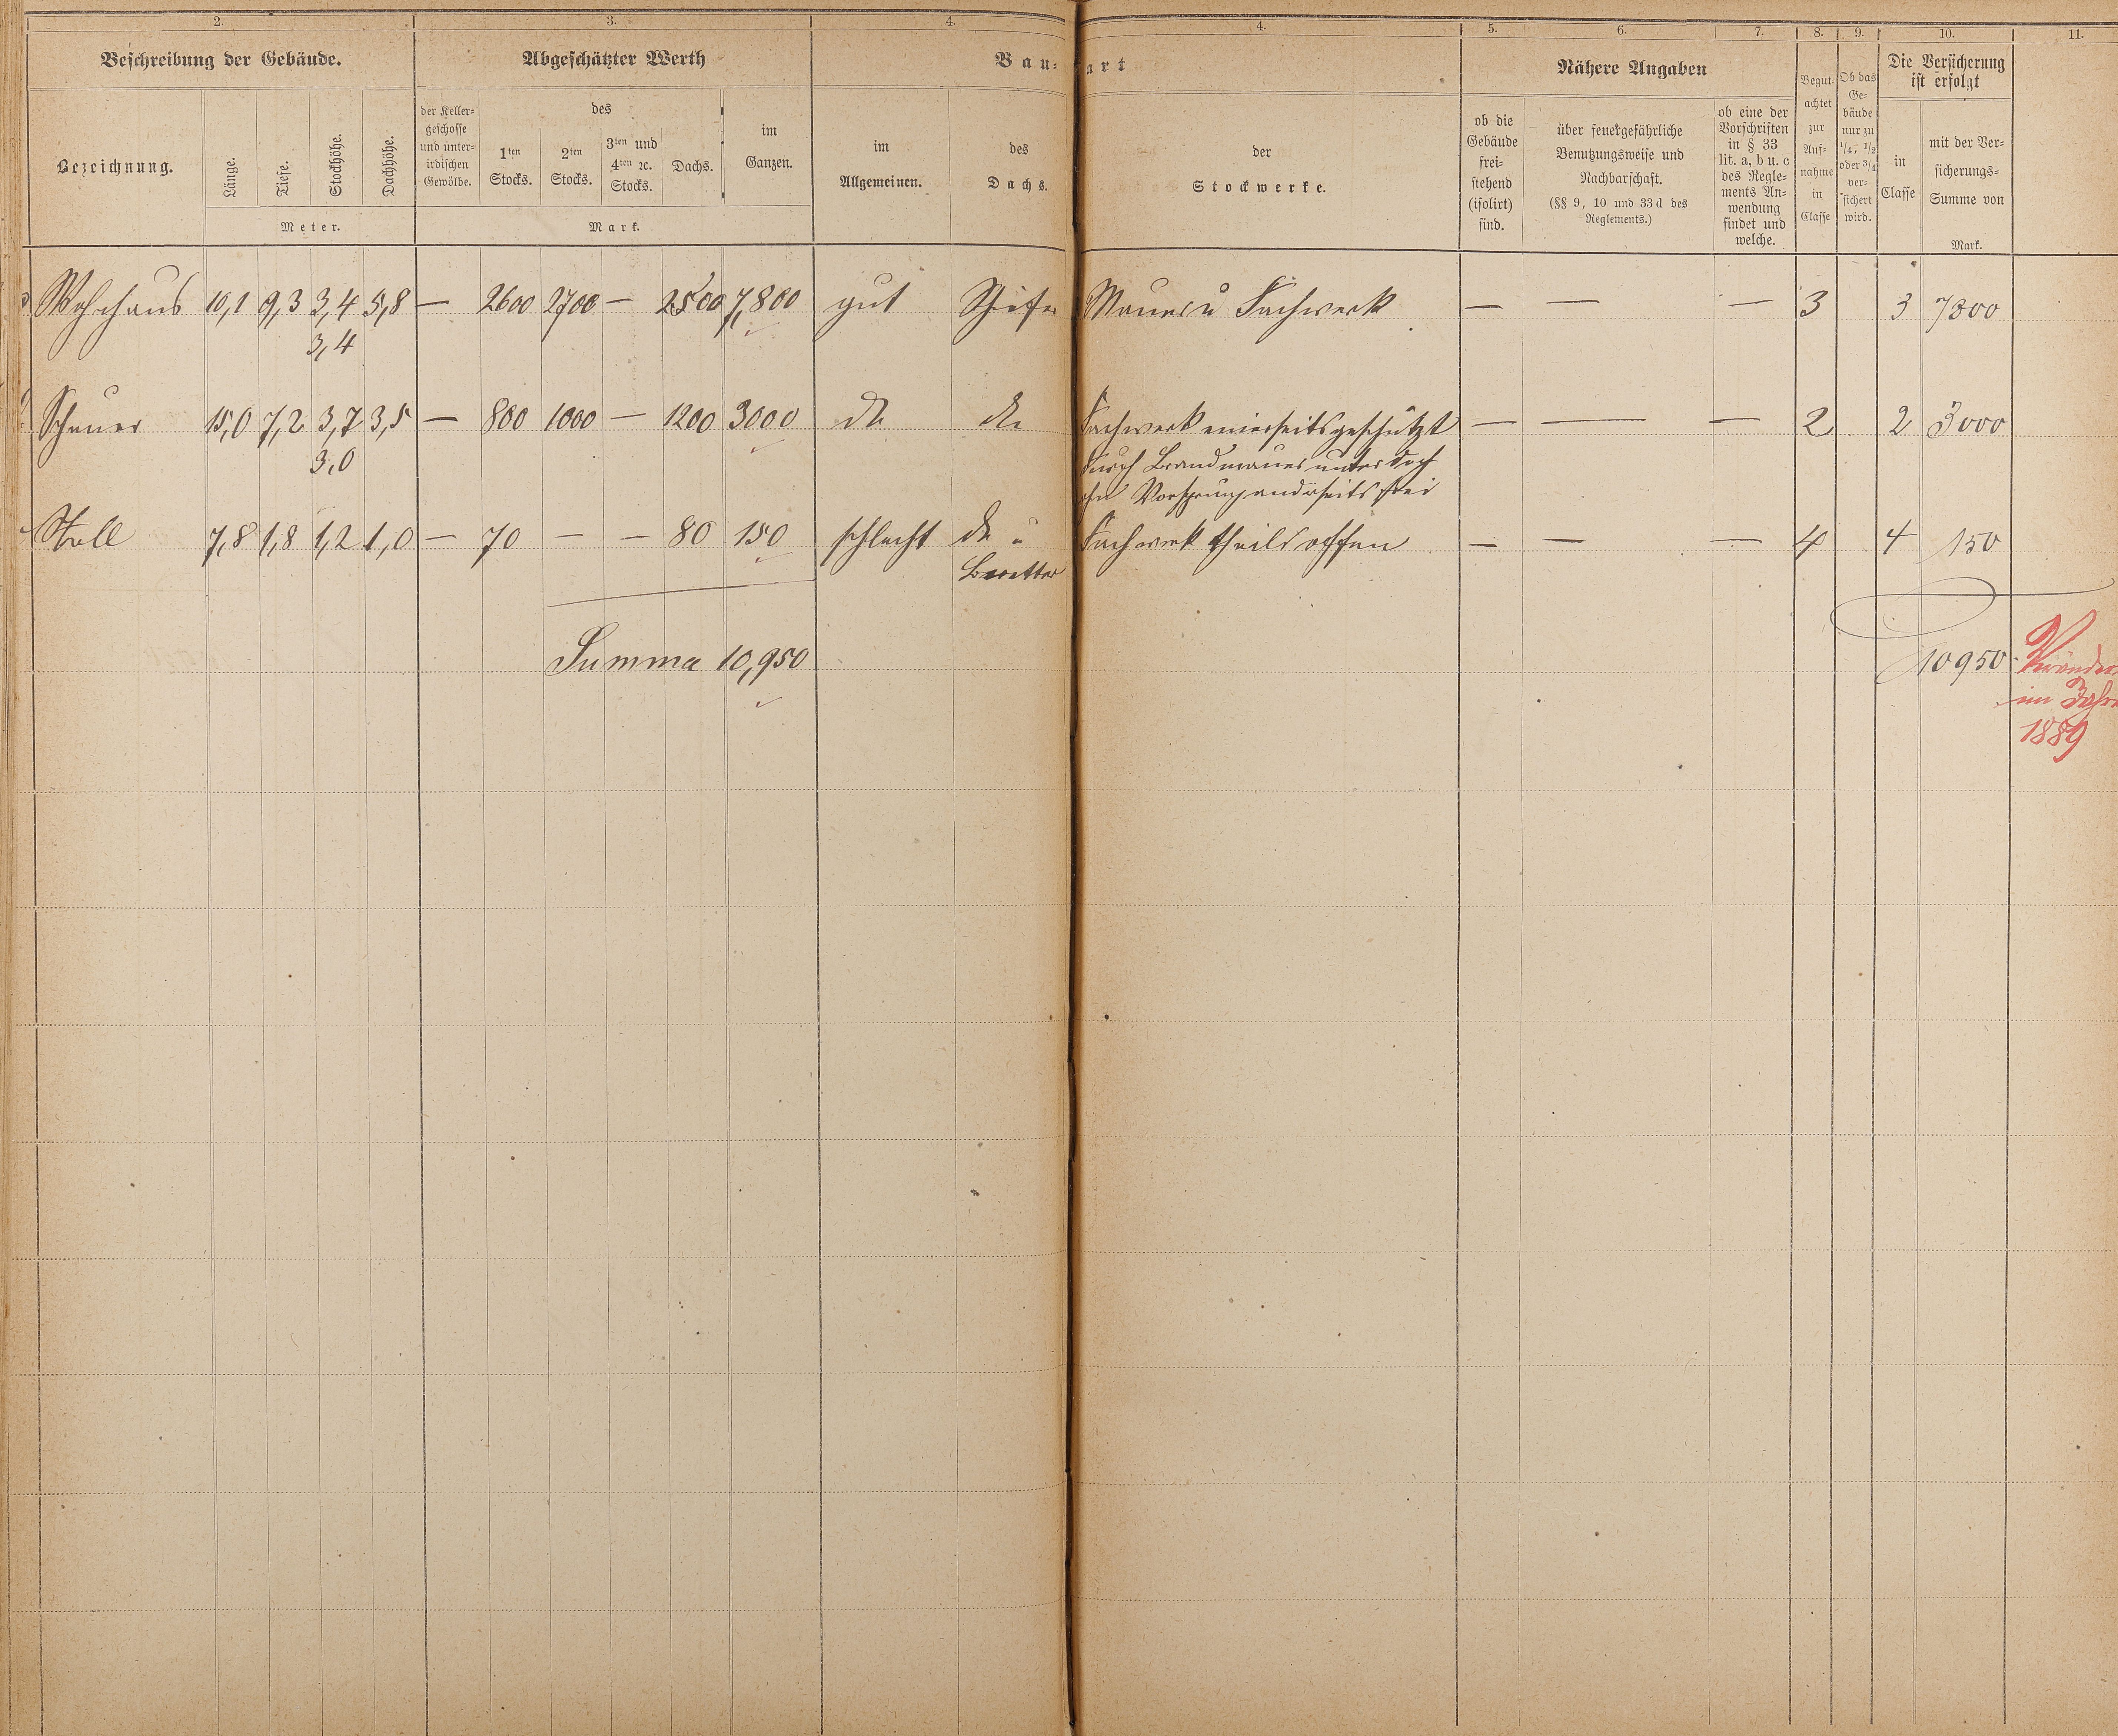 2. 3. 4. 4. 5. 6. 7. 8. 9. 10. 11.
Beschreibung der Gebäude. Abgeschätzter Werth Bau- art Nähere Angaben Begut- achtet zur Auf- nahme in Classe Ob das Ge- bäude nur zu 1/4, 1/2 oder 3/4 ver- sichert wird. Die Versicherung ist erfolgt
Bezeichnung. Länge. Tiefe. Stockhöhe. Dachhöhe. Meter.
der Keller- geschosse und unter- irdischen Gewölbe. des 1ten Stocks. 2ten Stocks. 3ten und 4ten ꝛc. Stocks. Dachs. im Ganzen. Mark.
im Allgemeinen. des Dachs. der Stockwerke.
ob die Gebäude frei- stehend (isolirt) sind. über feuergefährliche Benutzungsweise und Nachbarschaft. (§§ 9, 10 und 33 d des Reglements.) ob eine der Vorschriften in § 33 lit. a, b u. c des Regle- ments An- wendung findet und welche.
in Classe mit der Ver- sicherungs- Summe von Mark.
Wohnhaus 10,1 9,3 3,4 5,8 — 2600 2700 — 2500 7,800 gut Schiefer Mauer u Fachwerk — — — 3 3 7800
3,4
Scheuer 15,0 7,2 3,7 3,5 — 800 1000 — 1200 3000 do do Fachwerk einerseits geschützt — — — 2 2 3000
3,0 durch Brandmauer unter Dach
ohne Vorsprung anderseits frei
Stall 7,8 1,8 1,2 1,0 — 70 — — 80 150 schlecht do u Fachwerk theils offen — — — 4 4 150
Bretter
Summa 10,950 10950 Veränder.
im Jahre
1889